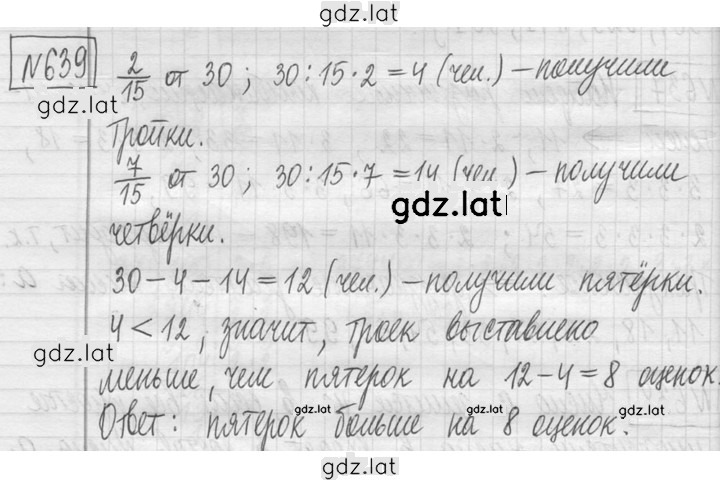 gdz.lat
№639 2/15 от 30; 30:15·2=4 (чел.) – получили
gdz.lat
тройки.
7/15 от 30; 30:15·7=14 (чел.) – получили
gdz.lat
четвёрки.
30-4-14=12 (чел.) – получили пятёрки.
4<12, значит, троек выставлено
gdz.lat
меньше, чем пятерок на 12-4=8 оценок.
gdz.lat gdz.lat gdz.lat
Ответ: пятерок больше на 8 оценок.
gdz.lat